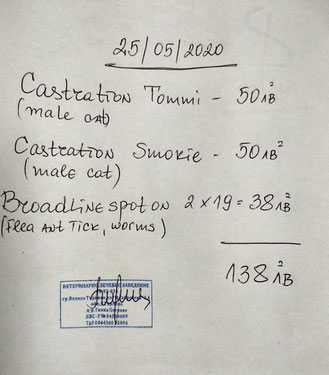 25/05/2020
Castration Tommi - 50лв
(male cat)
Castration Smokie - 50лв
(male cat)
Broadline spot on 2x19=38лв
(Flea ant Tick, worms)
138лв
ВЕТЕРИНАРНО ЛЕЧЕБНО ЗАВЕДЕНИЕ
гр. Велико